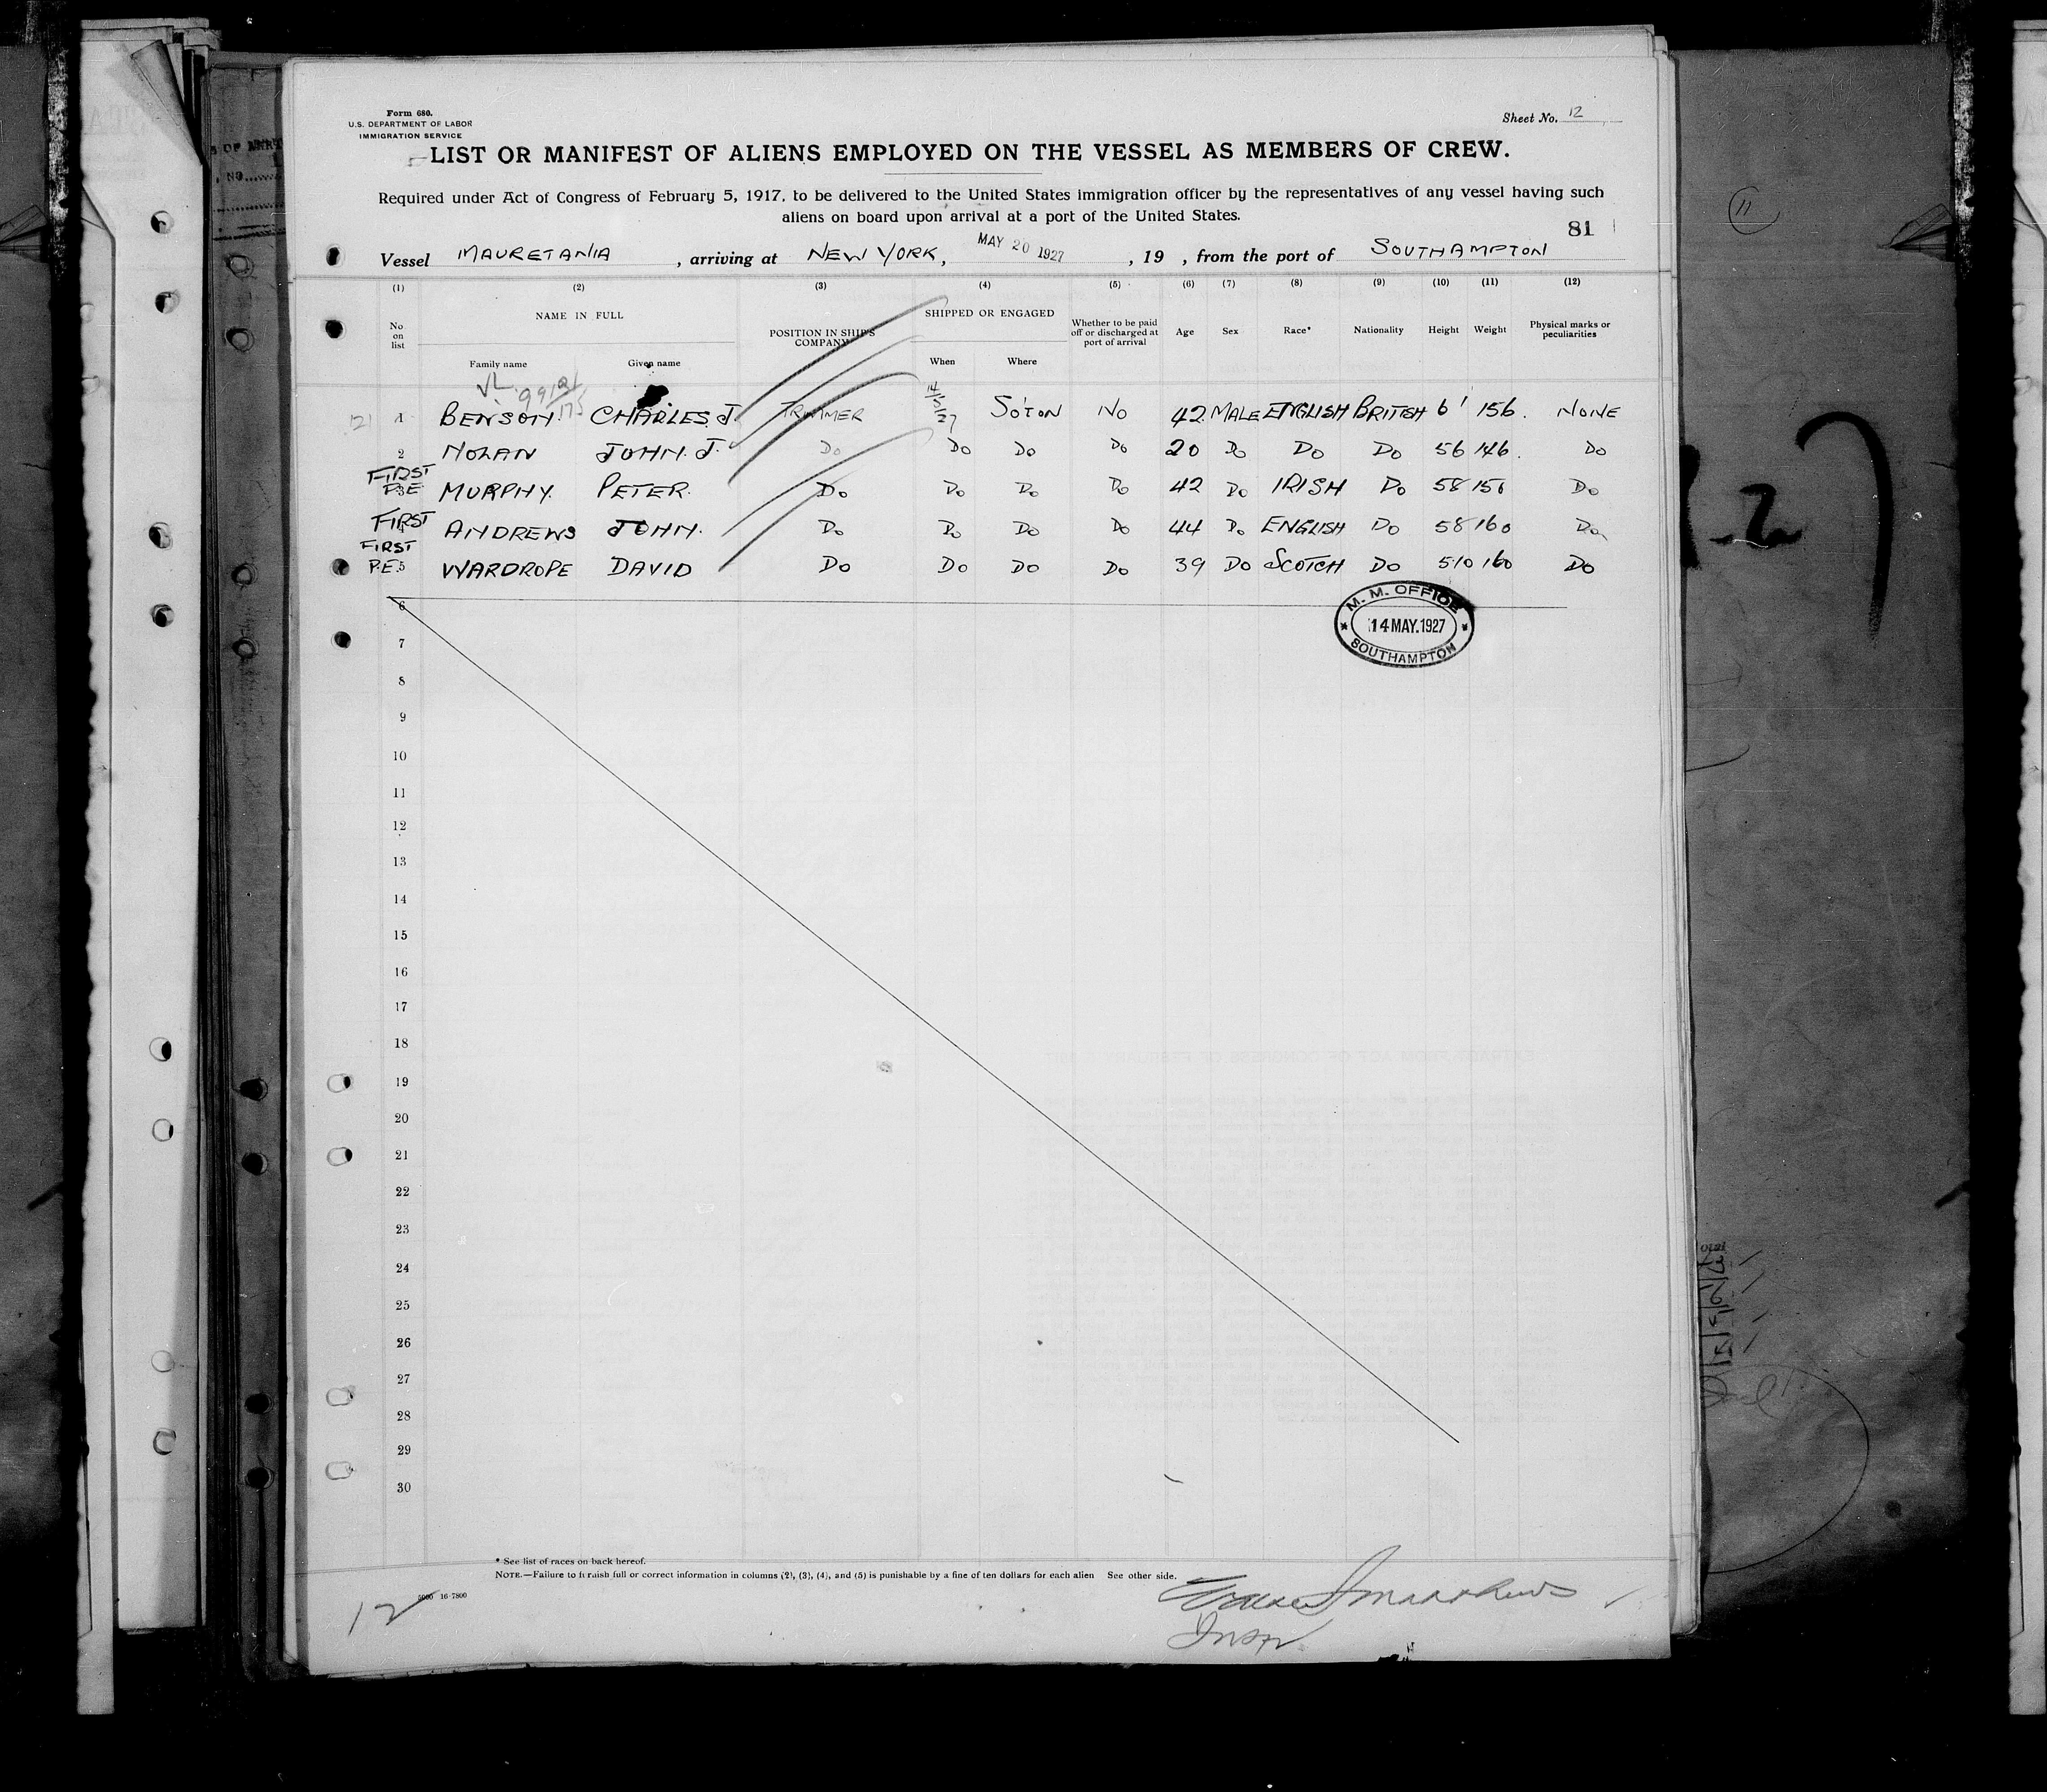 Form 680.
U.S. DEPARTMENT OF LABOR
IMMIGRATION SERVICE
Sheet No. 12
LIST OR MANIFEST OF ALIENS EMPLOYED ON THE VESSEL AS MEMBERS OF CREW.
Required under Act of Congress of February 5, 1917, to be delivered to the United States immigration officer by the representatives of any vessel having such
aliens on board upon arrival at a port of the United States.
81
Vessel MAURETANIA, arriving at NEW YORK, MAY 20 1927, 19 , from the port of SOUTHAMPTON
(1) (2) (3) (4) (5) (6) (7) (8) (9) (10) (11) (12)
No on list NAME IN FULL Family name Given name POSITION IN SHIP'S COMPANY SHIPPED OR ENGAGED When Where Whether to be paid off or discharged at port of arrival Age Sex Race* Nationality Height Weight Physical marks or peculiarities
1 BENSON CHARLES J. TRIMMER 14/5/27 SO'TON NO 42 MALE ENGLISH BRITISH 6' 156. NONE
2 NOLAN JOHN. J. DO DO DO DO 20 DO DO DO 56 146. DO
FIRST
3 MURPHY. PETER. DO DO DO DO 42 DO IRISH DO 58 DO
FIRST
ANDREWS JOHN. DO DO DO DO 44 DO ENGLISH DO 58 160 DO
FIRST
P.E. 5 WARDROPE DAVID DO DO DO DO 39 DO SCOTCH DO 510 160 DO
M. M. OFFICE
14 MAY. 1927
SOUTHAMPTON
6
7
8
9
10
11
12
13
14
15
16
17
18
19
20
21
22
23
24
25
26
27
28
29
30
* See list of races on back hereof.
NOTE.—Failure to furnish full or correct information in columns (2), (3), (4), and (5) is punishable by a fine of ten dollars for each alien See other side.
16-7800
12
Inspr